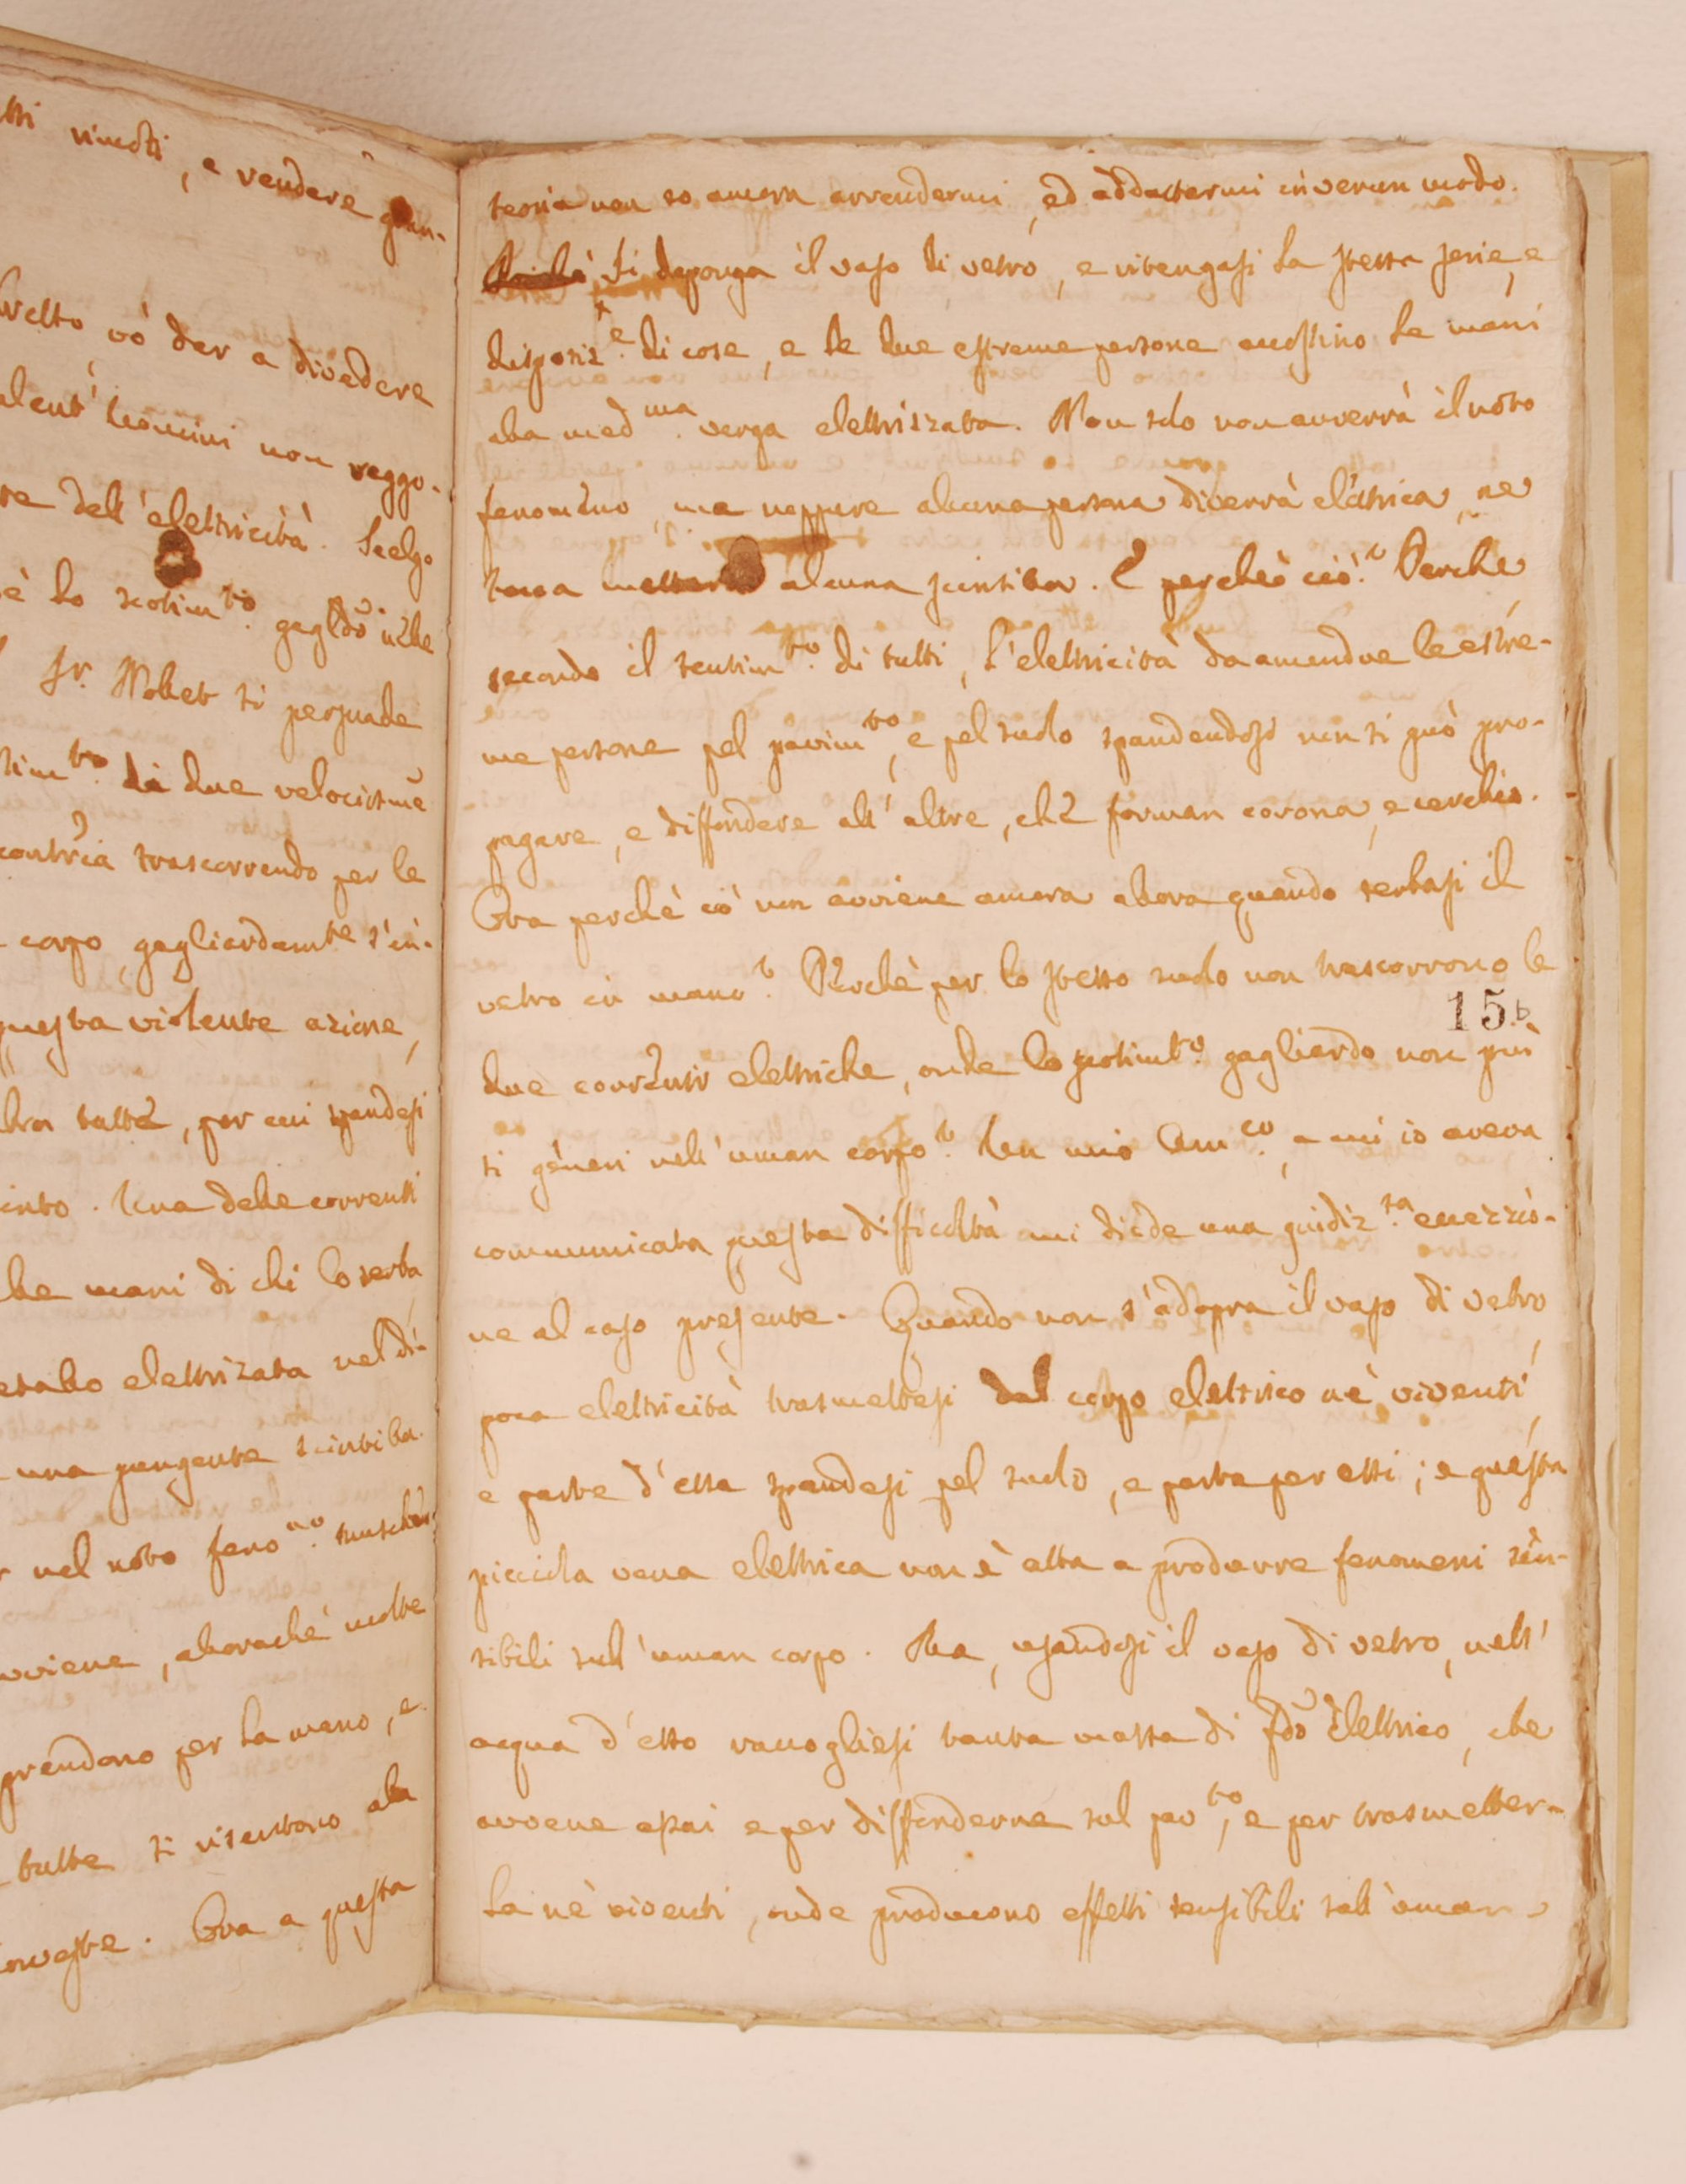 tti rimoti, e rendere gran-
velto vò dar a divedere
alent' huomini non reggo-
re dell' elettricità. Scelgo
è lo scotim.to gagl.do nelle
Sr. Nollet si persuade
tim.to di due velocissime
contraria trascorrendo per le
corpo, gagliardamte s'in-
questa violente azione,
tutte, per cui spandesi
into. Una delle correnti
lle mani di chi lo serba
etallo elettrizata nel di-
una pungente scintilla.
nel noto feno.no
vviene, allorachè molte
prendono per la mano, e
tutte si risentono alla
. Ora a questa
teoria non so ancora arrendermi, ed addattarmi in verun modo.
Si deponga il vaso di vetro, e ritengasi la stessa serie, e
disposiz.e di cose, e le due estreme persone accostino le mani
alla med.ma verga elettrizzata. Non solo non avverrà il noto
fenomeno, ma neppure alcuna persona diverrà elettrica, ne
alcuna scintilla. E perchè ciò? Perche
secondo il sentim.to di tutti, l'elettricità da amendue le estre-
me persone pel pavim.to, e pel suolo spandendosi non si può pro-
pagare, e diffondere all' altre, che forman corona, e cerchio.
Ora perchè ciò non avviene ancora allora quando serbasi il
vetro in mano? Perchè per lo stesso suolo non trascorrono le
15.b
due correnti elettriche, onde lo scotimto. gagliardo non più
si generi nell' uman corpo? Un mio Am.co, a cui io aveva
communicata questa difficoltà mi diede una giudiz.sa eccezzio-
ne al caso presente. Quando non s'adopra il vaso di vetro,
poca elettricità trasmettesi dal corpo elettrico ne' viventi,
e parte d'essa spandesi pel suolo, e parte per essi; e questa
picciola vena elettrica non è atta a produrre fenomeni sen-
sibili sull' uman corpo. Ma, usandosi il vaso di vetro, nell'
acqua d'esso raccogliesi tanta massa di fdo elettrico, che
avvene assai e per diffonderne sul pav.to, e per trasmetter-
la ne' viventi, onde producono effetti sensibili sull' uman